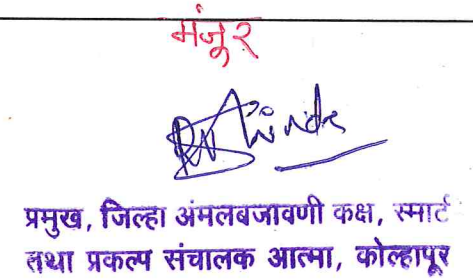 मंजूर
प्रमुख, जिल्हा अंमलबजावणी कक्ष, स्मार्ट
तथा प्रकल्प संचालक आत्मा, कोल्हापूर